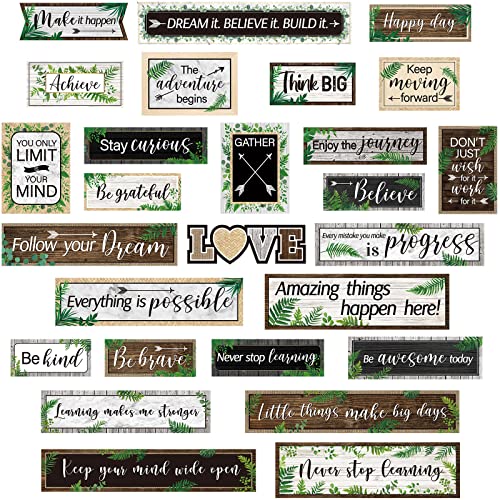 Make it happen
DREAM it. BELIEVE it. BUILD it.
Happy day
Achieve
The
adventure
begins
Think BIG
Keep
moving
forward
YOU ONLY
LIMIT
YOUR
MIND
Stay curious
Be grateful
GATHER
Enjoy the journey
Believe
DON'T
JUST
wish
for it
work
for it
Follow your Dream
LOVE
Every mistake you make
is progress
Everything is possible
Amazing things
happen here!
Be kind
Be brave
Never stop learning
Be awesome today
Learning makes me stronger
Little things make big days
Keep your mind wide open
Never stop learning